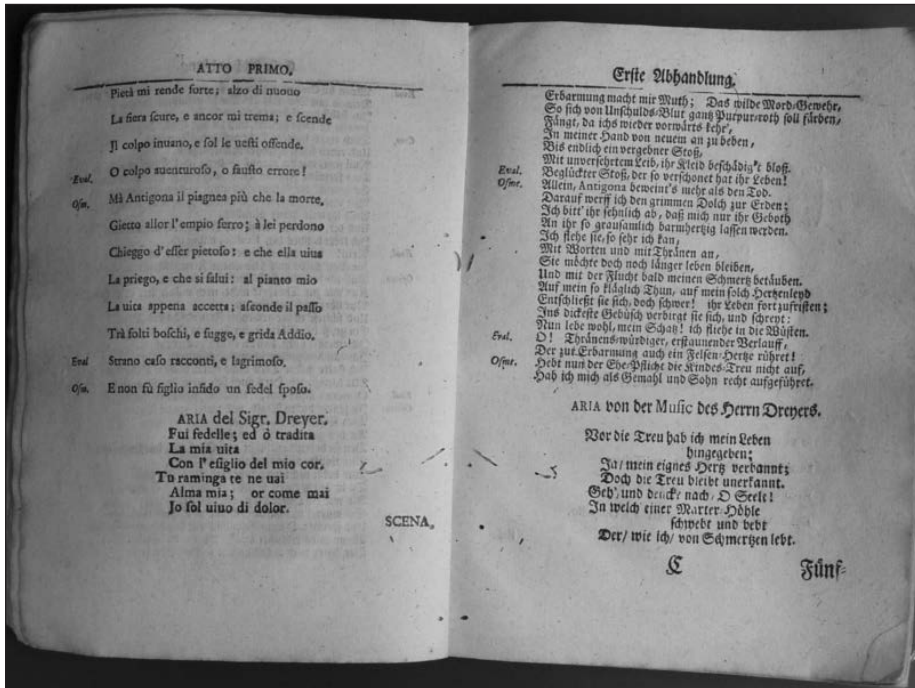 ATTO PRIMO.
Pietà mi rende forte; alzo di nuouo
La fiera scure, e ancor mi trema; e scende
Jl colpo inuano, e sol le uesti offende.
Eval. O colpo auenturoso, o fausto errore!
Osm. Mà Antigona il piagnea più che la morte.
Gietto allor l'empio ferro; à lei perdono
Chieggo d'esser pietoso: e che ella uiua
La priego, e che si salui: al pianto mio
La uita appena accetta; asconde il passo
Trà folti boschi, e fugge, e grida Addio.
Eval Strano caso racconti, e lagrimoso.
Osm. E non fù figlio infido un fedel sposo.
ARIA del Sigr. Dreyer.
Fui fedelle; ed ò tradita
La mia uita
Con l'esiglio del mio cor.
Tu raminga te ne uai
Alma mia; or come mai
Jo sol uiuo di dolor.
SCENA.
Erste Abhandlung.
Erbarmung macht mir Muth; Das wilde Mord-Gewehr,
So sich von Unschulds-Blut gantz Purpur-roth soll färben,
Fängt, da ichs wieder vorwärts kehr',
In meiner Hand von neuem an zu beben,
Bis endlich ein vergebner Stoß,
Mit unversehrtem Leib, ihr Kleid beschädig't bloß.
Eval. Beglückter Stoß, der so verschonet hat ihr Leben!
Osmt. Allein, Antigona beweint's mehr als den Tod.
Darauf werff ich den grimmen Dolch zur Erden;
Ich bitt' ihr sehnlich ab, daß mich nur ihr Geboth
An ihr so grausamlich barmhertzig lassen werden.
Ich flehe sie, so sehr ich kan,
Mit Worten und mit Thränen an,
Sie möchte doch noch länger leben bleiben,
Und mit der Flucht bald meinen Schmertz betäuben.
Auf mein so kläglich Thun, auf mein solch Hertzenleyd
Entschließt sie sich, doch schwer! ihr Leben fortzufristen;
Ins dickeste Gebüsch verbirgt sie sich, und schreyt:
Nun lebe wohl, mein Schatz! ich fliehe in die Wüsten.
Eval. O! Thränens-würdiger, erstaunender Verlauff,
Der zur Erbarmung auch ein Felsen-Hertze rühret!
Osmt. Hebt nun der Ehe-Pflicht die Kindes-Treu nicht auf,
Hab ich mich als Gemahl und Sohn recht aufgeführet.
ARIA von der Music des Herrn Dreyers.
Vor die Treu hab ich mein Leben
hingegeben;
Ja/ mein eignes Hertz verbannt;
Doch die Treu bleibt unerkannt.
Geh', und dencke nach, O Seele!
In welch einer Marter-Höhle
schwebt und bebt
Der/ wie ich/ von Schmertzen lebt.
C Fünf-